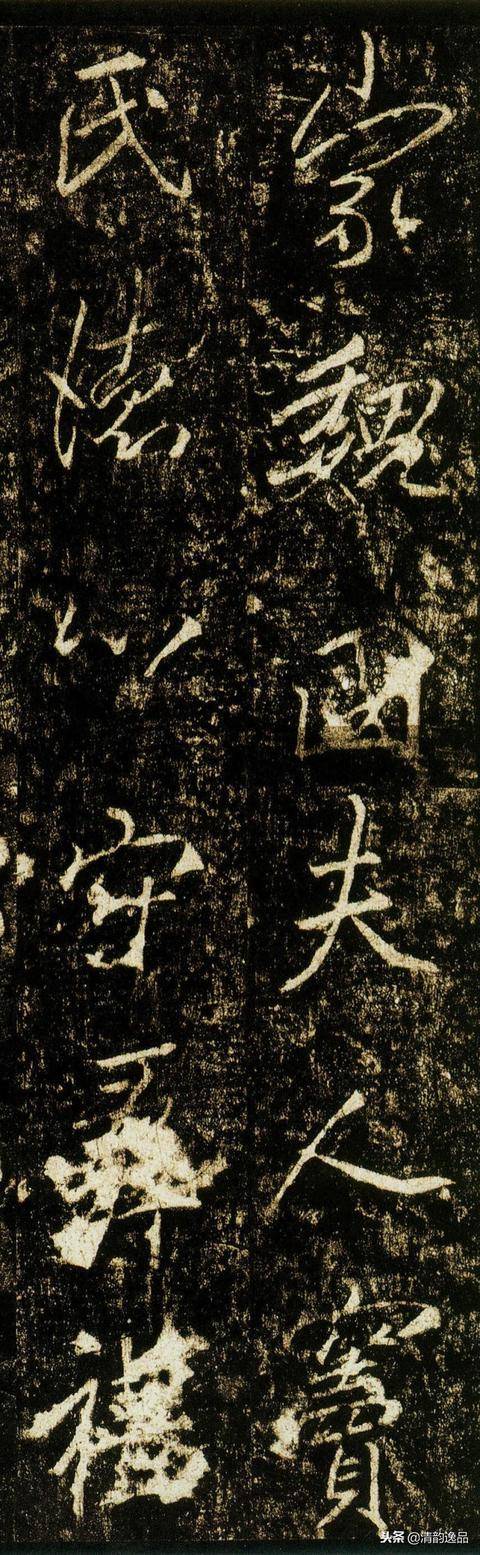 家魏國夫人竇
氏德以守彝禮
头条 @清韵逸品